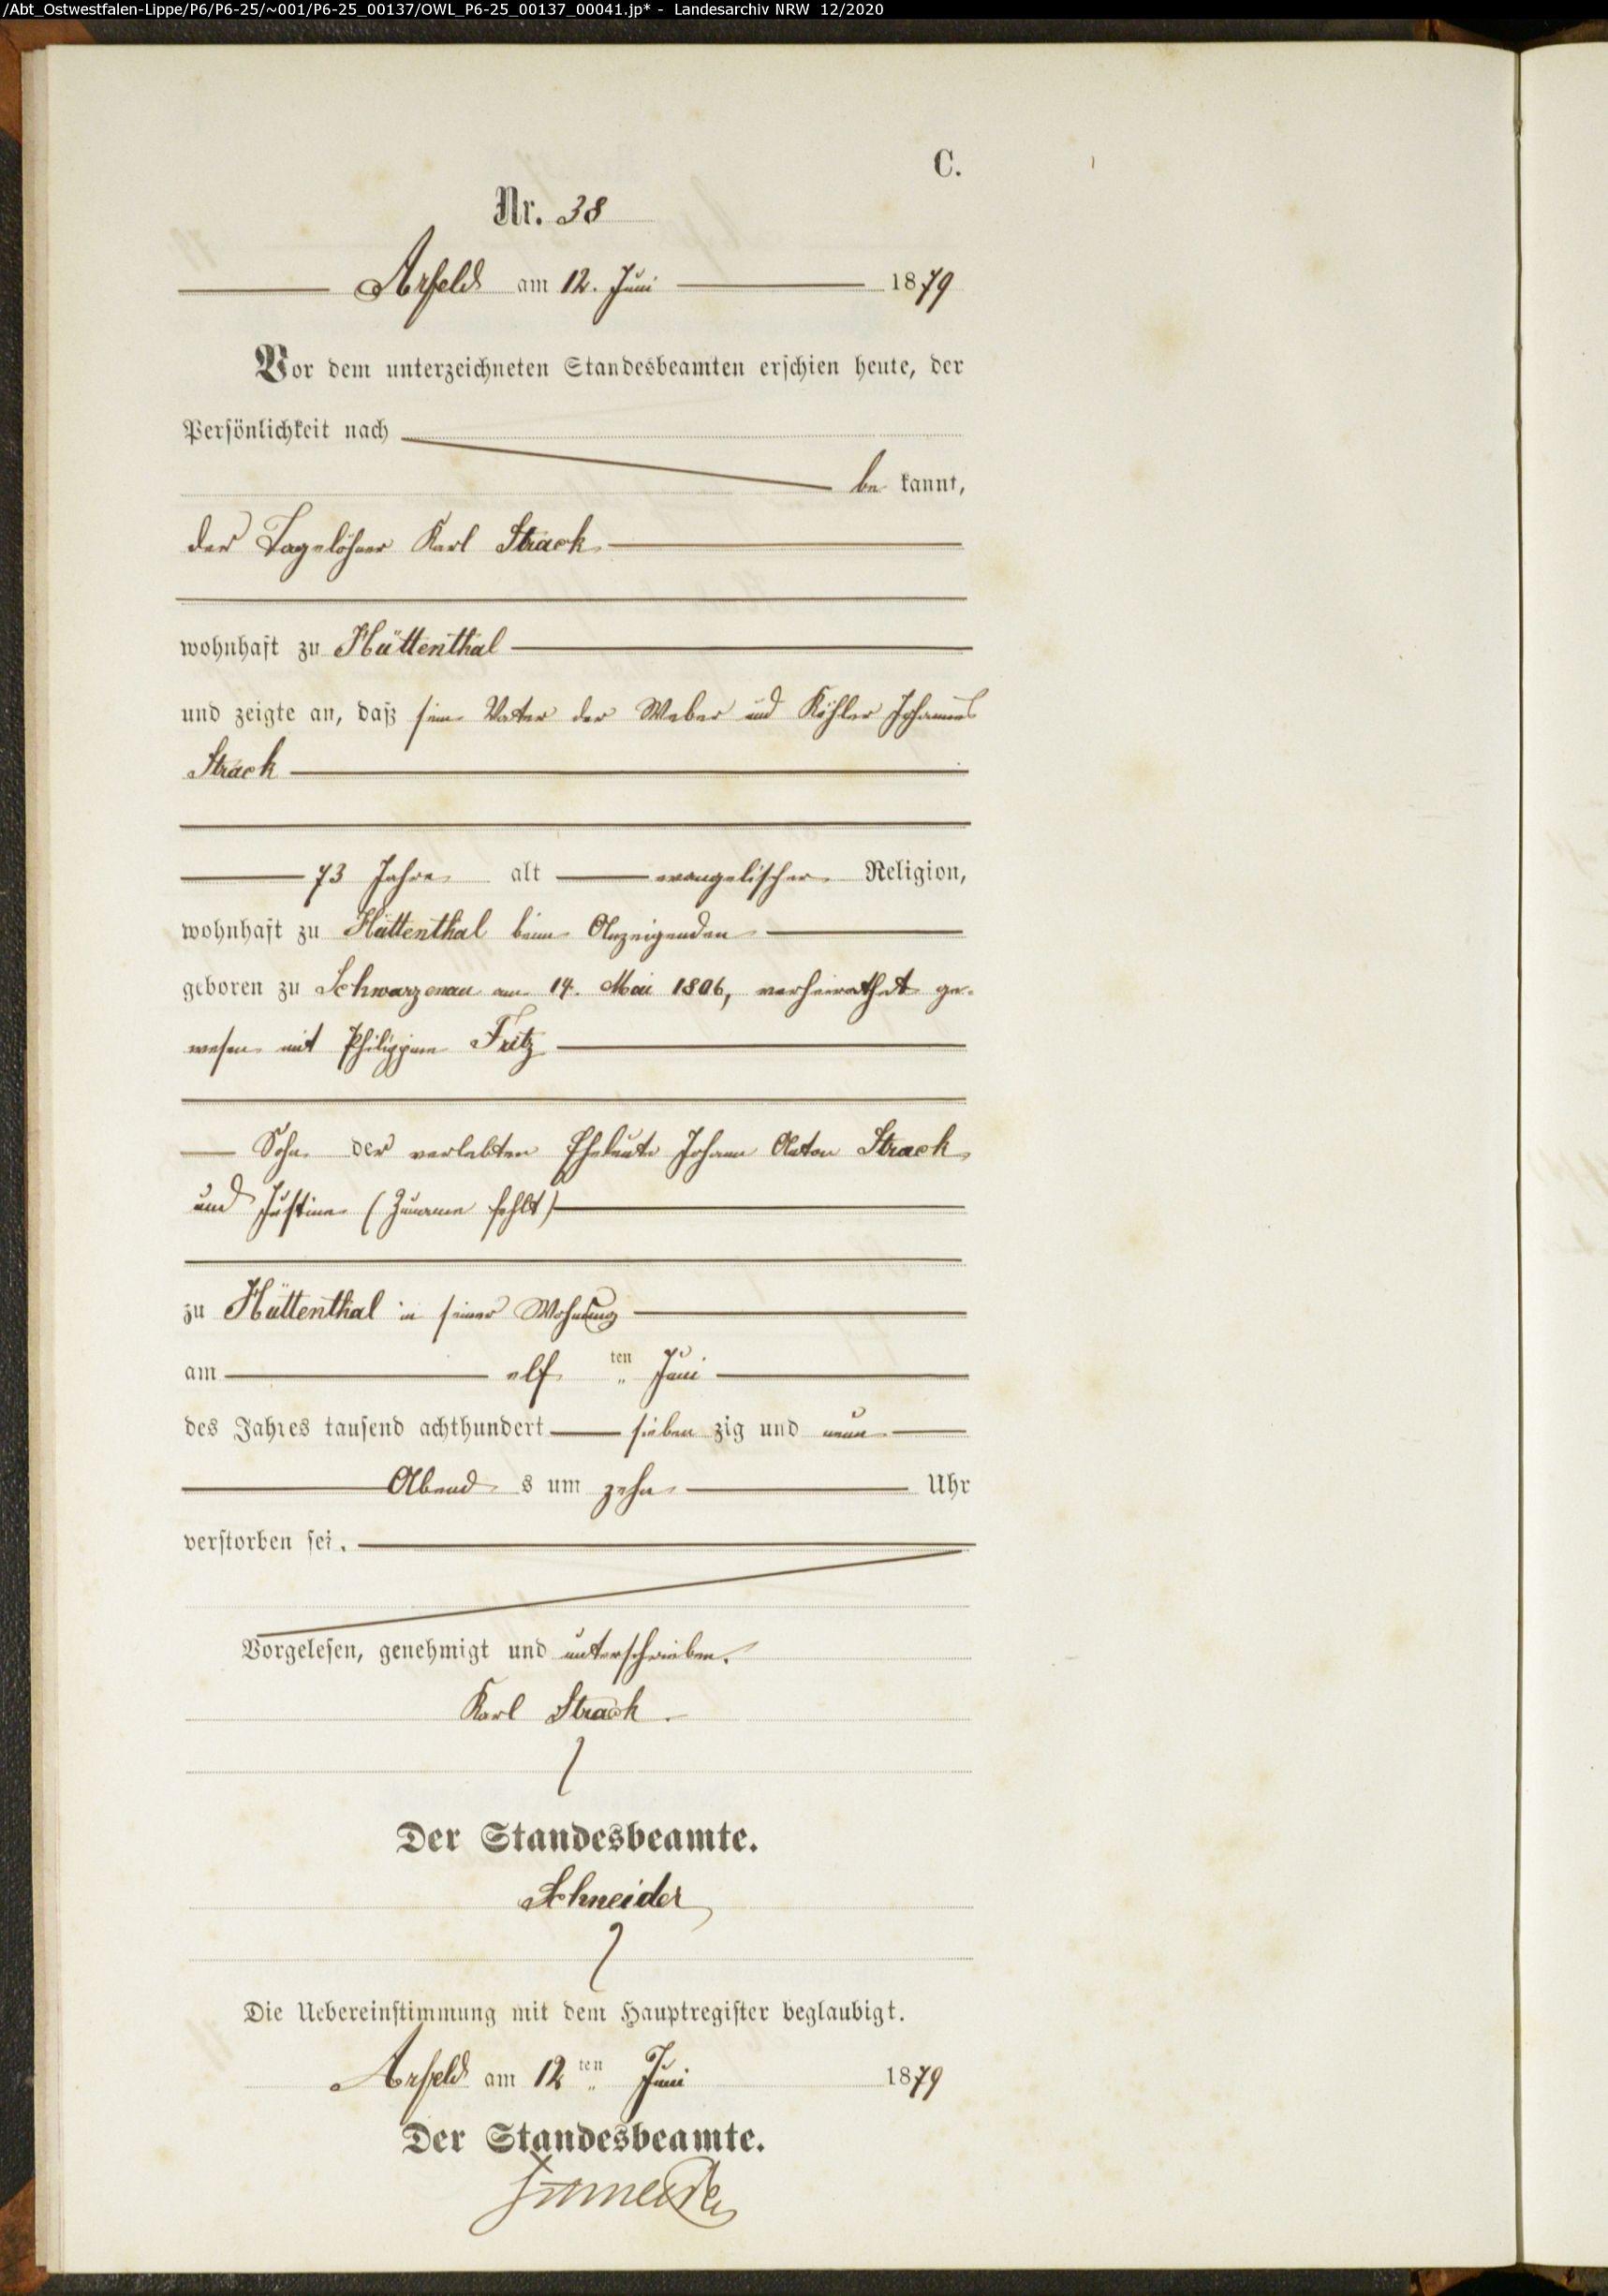 /Abt_Ostwestfalen-Lippe/P6/P6-25/~001/P6-25_00137/OWL_P6-25_00137_00041.jp* - Landesarchiv NRW 12/2020
C.
Nr. 38
Arfeld am 12. Juni 1879
Vor dem unterzeichneten Standesbeamten erschien heute, der
Persönlichkeit nach
be kannt,
der Tagelöhner Karl Strack
wohnhaft zu Hüttenthal
und zeigte an, daß sein Vater der Weber und Köhler Johannes
Strack
73 Jahre alt evangelischer Religion,
wohnhaft zu Hüttenthal beim Anzeigenden
geboren zu Schwarzenau am 14. Mai 1806, verheirathet ge-
wesen mit Philippine Fritz
Sohn der verlebten Eheleute Johann Anton Strack
und Justine (Zuname fehlt)
zu Hüttenthal in seiner Wohnung
am elf ten Juni
des Jahres tausend achthundert sieben zig und neun
Abend s um zehn Uhr
verstorben sei.
Vorgelesen, genehmigt und unterschrieben.
Karl Strack.
Der Standesbeamte.
Schneider
Die Uebereinstimmung mit dem Hauptregister beglaubigt.
Arfeld am 12 ten Juni 1879
Der Standesbeamte.
Schneider